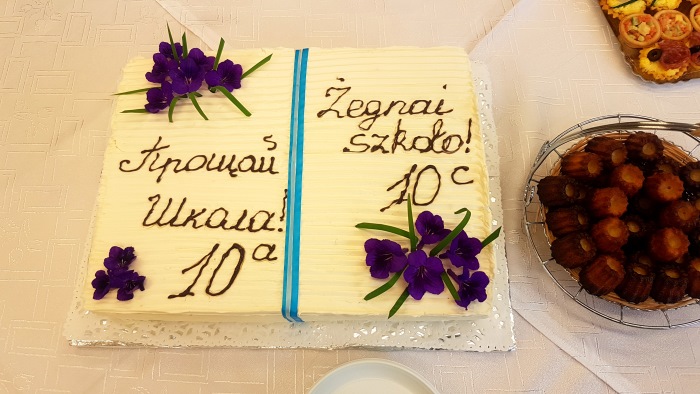 Прощай
Школа!
10а
Żegnai
szkoło!
10c